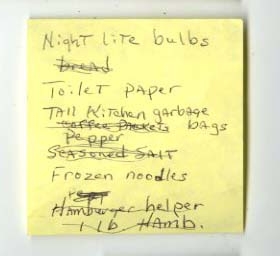 Night lite bulbs
bread
Toilet paper
Tall Kitchen garbage
coffee packets bags
Pepper
Seasoned Salt
Frozen noodles
Hamburger helper
1 lb. Hamb.